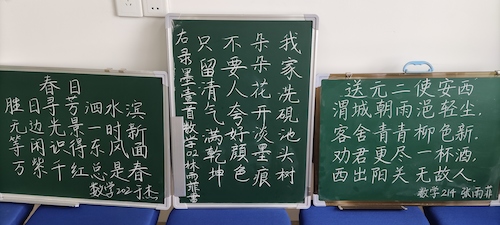 春日
胜日寻芳泗水滨
无边光景一时新
等闲识得东风面
万紫千红总是春
数学202
我家洗硯池头树
朵朵花开淡墨痕
不要人夸好顔色
只留清气满乾坤
右录墨梅壹首数学202林雨菲书
送元二使安西
渭城朝雨浥轻尘.
客舍青青柳色新.
劝君更尽一杯酒.
西出阳关无故人.
数学214 张雨菲